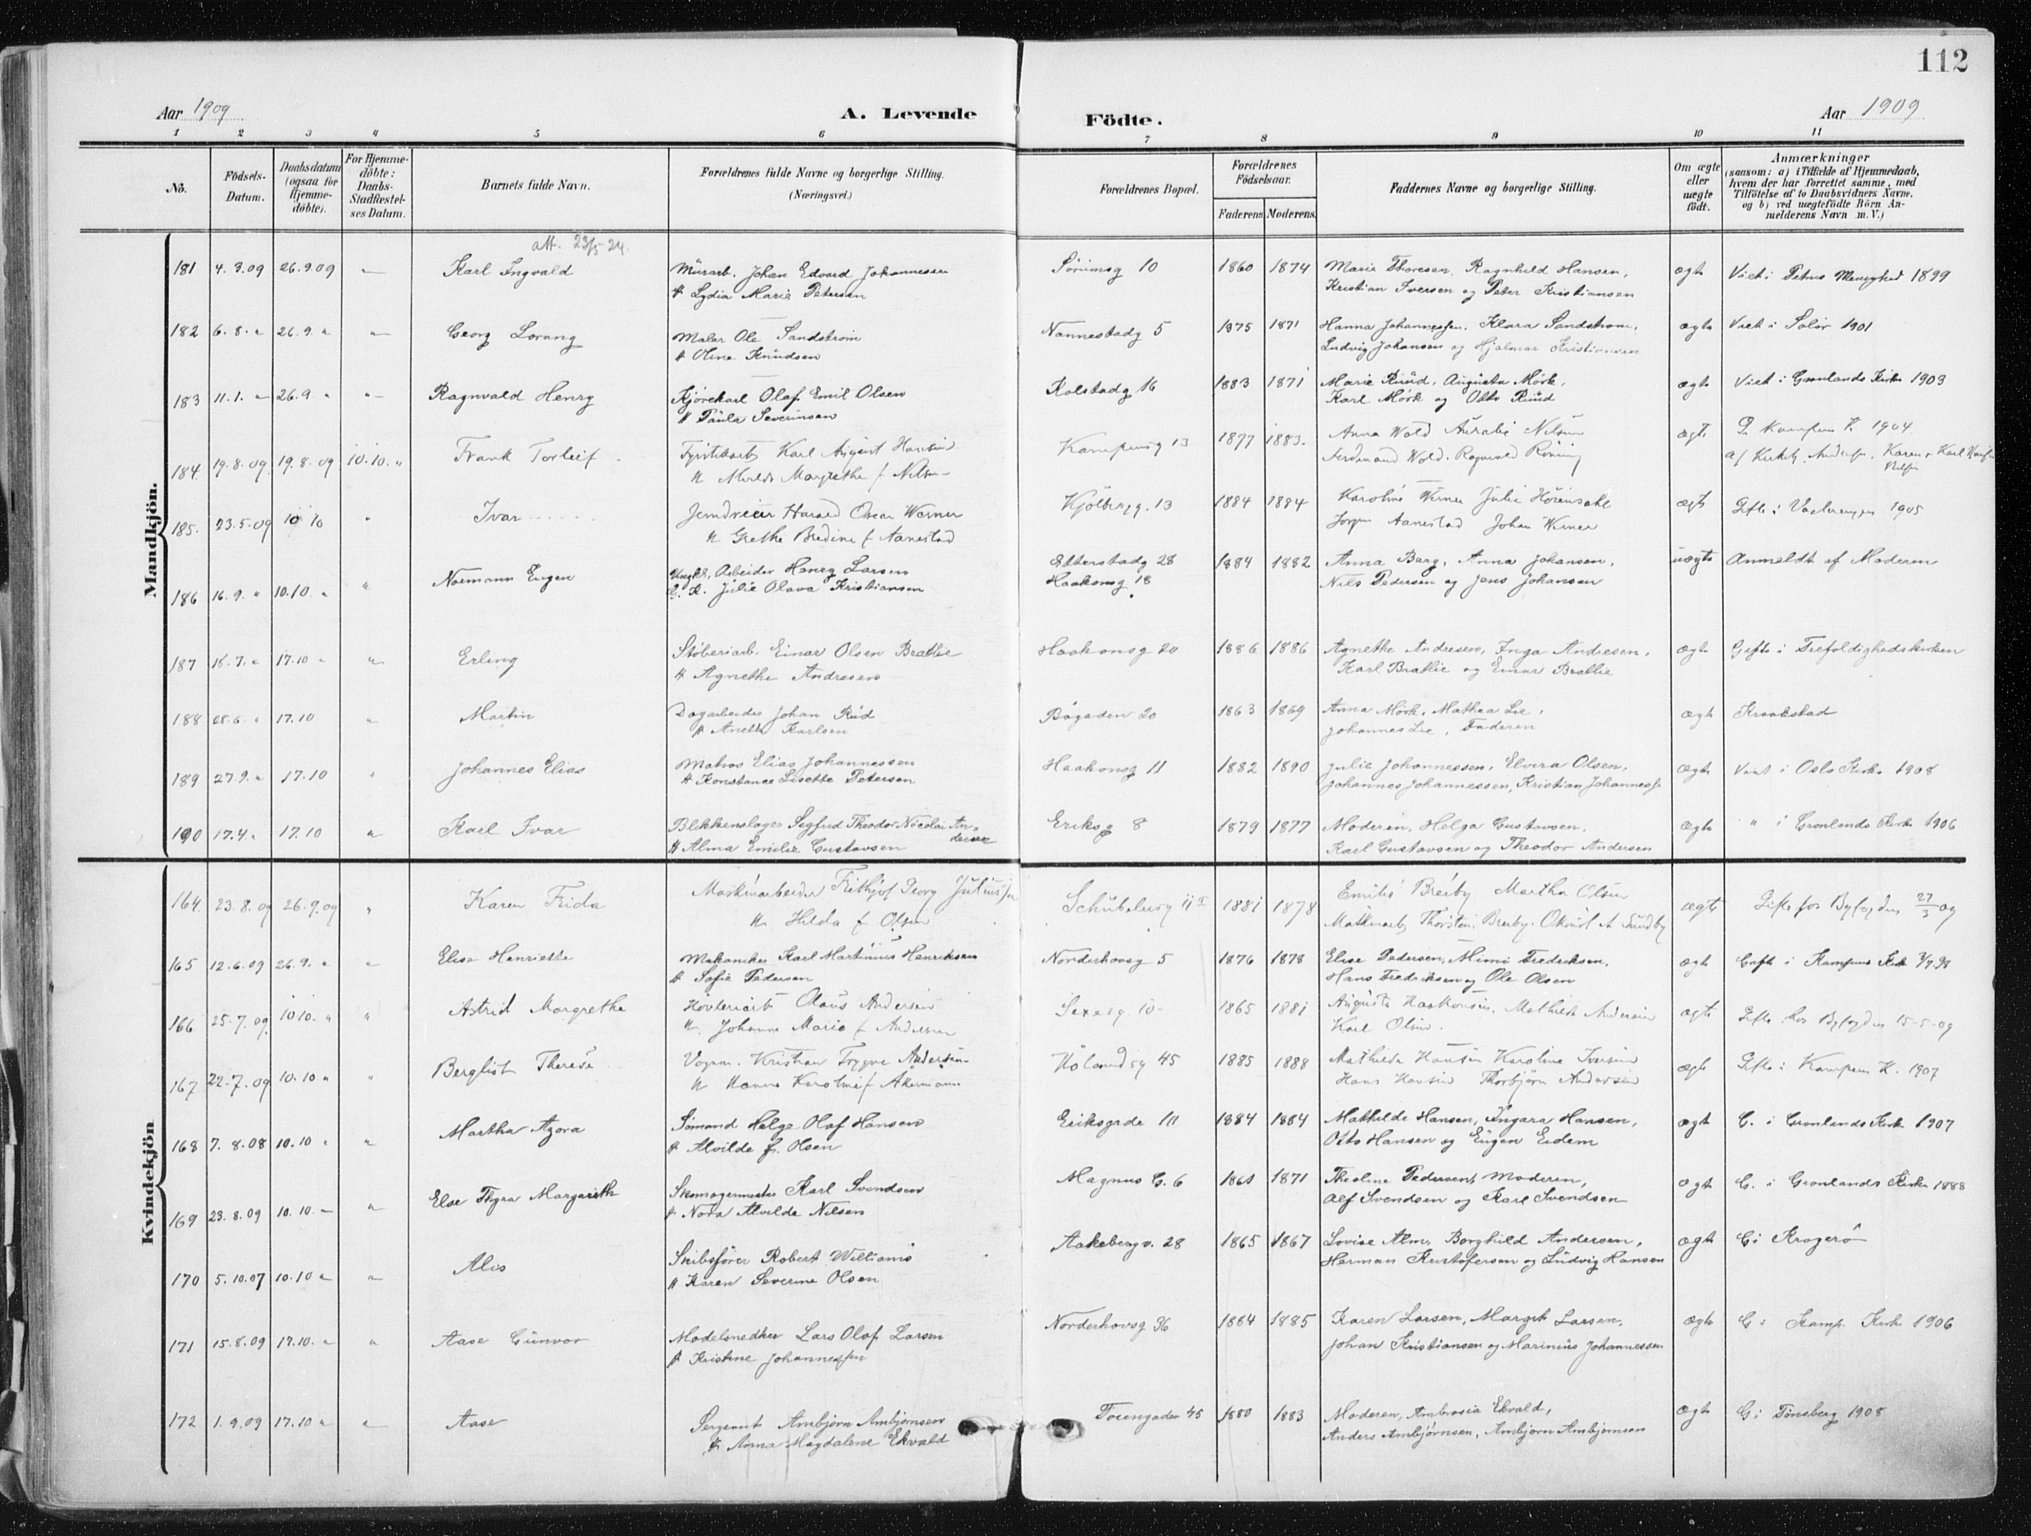 112
Aar 1909
A. Levende
Födte.
Aar 1909
1 2 3 4 5 6 7 8 9 10 11
No.
Födsels-Datum.
Daabsdatum (ogsaa for Hjemme-döbte).
For Hjemme-döbte: Daabs-Stadfæstel-ses Datum.
Barnets fulde Navn.
Forældrenes fulde Navne og borgerlige Stilling. (Næringsvei.)
Forældrenes Bopæl.
Forældrenes Födselsaar.
Faderens Moderens
Faddernes Navne og borgerlige Stilling.
Om ægte eller uægte födt.
Anmærkninger
(saasom: a) i Tilfælde af Hjemmedaab, hvem der har forrettet samme, med Tilföielse af to Daabsvidners Navne, og b) ved uægtefödte Börn An-melderens Navn m. V.)
Mandkjön.
att. 23/5 24.
181 4.9.09 26.9.09 — Karl Ingvald Murarb. Johan Edvard Johannessen Sörumsg 10 1860 1874 Marie Thoresen, Ragnhild Hansen, ægte Viet i Petrus Menighed 1899
H Lydia Marie Petersen Kristian Iversen og Peter Kristiansen
182 6.8. " 26.9. " " Georg Lorang Maler Ole Sandström Nannestadg 5 1875 1871 Hanna Johannessen, Klara Sandström, ægte Viet i Solör 1901
H Oline Knudsen Ludvig Johansen og Hjalmar Kristiansen
183 11.1. " 26.9 " " Ragnvald Henry Kjörekarl Olaf Emil Olsen Rolstadg 16 1883 1871 Marie Ruud, Augusta Mörk, ægte Viet i Grønlands Kirke 1909
H Paula Severinsen Karl Mörk og Otto Ruud
184 19.8.09 19.8.09 10.10. " Frank Torleif Karl August Kampensg 13 1877 1883. Anna Wold Nilsen ægte Kampens K. 1904
Margrethe f Nilsen Ferdinand Wold. Ragnvald Röning
185. 23.5.09 10 10 " Ivar Jerndreier Harald Oscar Werner Kjölbergg. 13 1884 1884 Werner Julie ægte Gifte i Vaalerengen 1905
Grethe Bredine f Aanestad Jörgen Aanestad Johan Werner
186 16.9. " 10.10 " " Normann Eugen Ungk. Arbeider Henry Larsen Etterstadg 28 1884 1882 Anna Berg, Anna Johansen, uægte Anmeldt af Moderen
Julie Olava Kristiansen Haakonsg 18 Nils Pedersen og Jens Johansen
187 18.7. " 17.10 " " Erling Støberiarb. Einar Olsen Bratlie Haakonsg 20 1886 1886 Agnethe Andresen, Inga Andresen, ægte Gifte i Trefoldighedskirken
H Agnethe Andresen Karl Bratlie og Einar Bratlie
188 25.6. " 17.10 " Martin Dagarbeider Johan Rud Bøgaden 20 1863 1869 Anna Mörk, Mathea Lie, ægte Kraakstad
H Anette Karlsen Johannes Lie, Faderen
189 27.9. " 17.10 " Johannes Elias Matros Elias Johannessen Haakonsg 11 1882 1890 Julie Johannessen, Elvira Olsen, ægte Viet i Oslo Kirke 1908
H Konstance Lisette Petersen Johannes Johannessen, Kristian Johannessen
190 17.4. " 17.10 " Karl Ivar Blikkenslager Sigfred Theodor Nicolai An-dersen Eriksg 8 1879 1877 Moderen, Helga Gustavsen, ægte " i Grønlands Kirke 1906
H Alma Emilie Gustavsen Karl Gustavsen og Theodor Andersen
Kvindekjön
164. 23.8.09 26.9.09 " Karen Frida Maskinarbeider Frithjof Georg Juliussen Schübelersg 1881 1878 Emilie Breiby Martha Olsen ægte Gifte for Byfogden 27/3 09
Hilda f Olsen Maskinarb. Thorstein Breiby.
165 12.6.09 26.9. " " Elise Henriette Mekaniker Karl Martinius Henriksen Norderhovsg 5 1876 1878 Elise Pedersen, Mimi Fredriksen, ægte Gift i Kampens Kirke
H Sofie Pedersen Hans Fredriksen og Ole Olsen
166 25.7.09 10 10. " " Astrid Margrethe Høvleriarb Olaus Andersen Sexesg 10 1865 1881 Augusta Haakonsen, Mathilde Andersen ægte Gifte hos Byfogden 15-5-09
Johanne Marie f Andersen Karl Olsen.
167 22.7.09 10.10 " " Bergliot Therese Vogm. Kristian Trygve Andersen Hölandsg 45 1885 1888 Mathilde Hansen Karoline Iversen ægte Gifte i Kampens K. 1907
Hanna Karoline f Akermann Hans Hansen Thorbjörn Andersen
168 7.8.08 10.10 " " Martha Azora Sømand Helge Olaf Hansen Eriksgade 10 1884 1884 Mathilde Hansen, Ingara Hansen, ægte G. i Grønlands Kirke 1907
H Alvilde f. Olsen Otto Hansen og Eugen Eidem
169 23.8.09 10.10. — " Else Thyra Margareth Skomagermester Karl Svendsen Magnus G. 6 1861 1871 Theoline Pedersen, Moderen, ægte G. i Grønlands Kirke 1888
H Nora Alvilde Nilsen Alf Svendsen og Karl Svendsen
170 5.10.07 10.10 " " Alis Skibsfører Robert Williams Aakebergv. 28 1865 1867 Lovise Alm, Borghild Andersen, ægte G i Kragerø
H Karen Severine Olsen Herman Kristofersen og Ludvig Hansen
171 15.8.09 17.10. " " Aase Gunvor Modelsnedker Lars Olaf Larsen Norderhovsg 36 1884 1885 Karen Larsen, Margit Larsen, ægte G i Kamp. Kirke 1906
H Kristine Johannessen Johan Kristiansen og Marinius Johannessen
172 1.9.09 17.10 " " Aase Sergeant Ambjørn Ambjørnsen Tøiengaden 45 1880 1883 Moderen, Ambrosia Ekvald, ægte G i Tønsberg 1908
H Anna Magdalene Ekvald Anders Ambjørnsen, Ambjørn Ambjørnsen